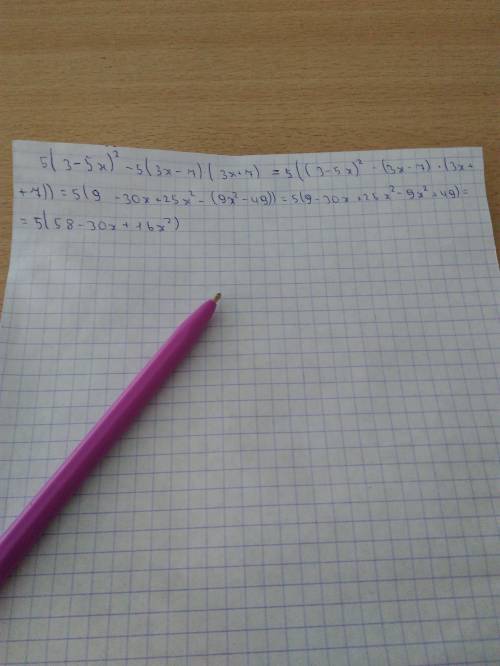 5(3-5x)² - 5(3x-7)(3x+7) = 5((3-5x)² - (3x-7)·(3x+
+7)) = 5(9 -30x+25x² - (9x²-49)) = 5(9-30x+25x²-9x²+49)=
= 5(58-30x+16x²)